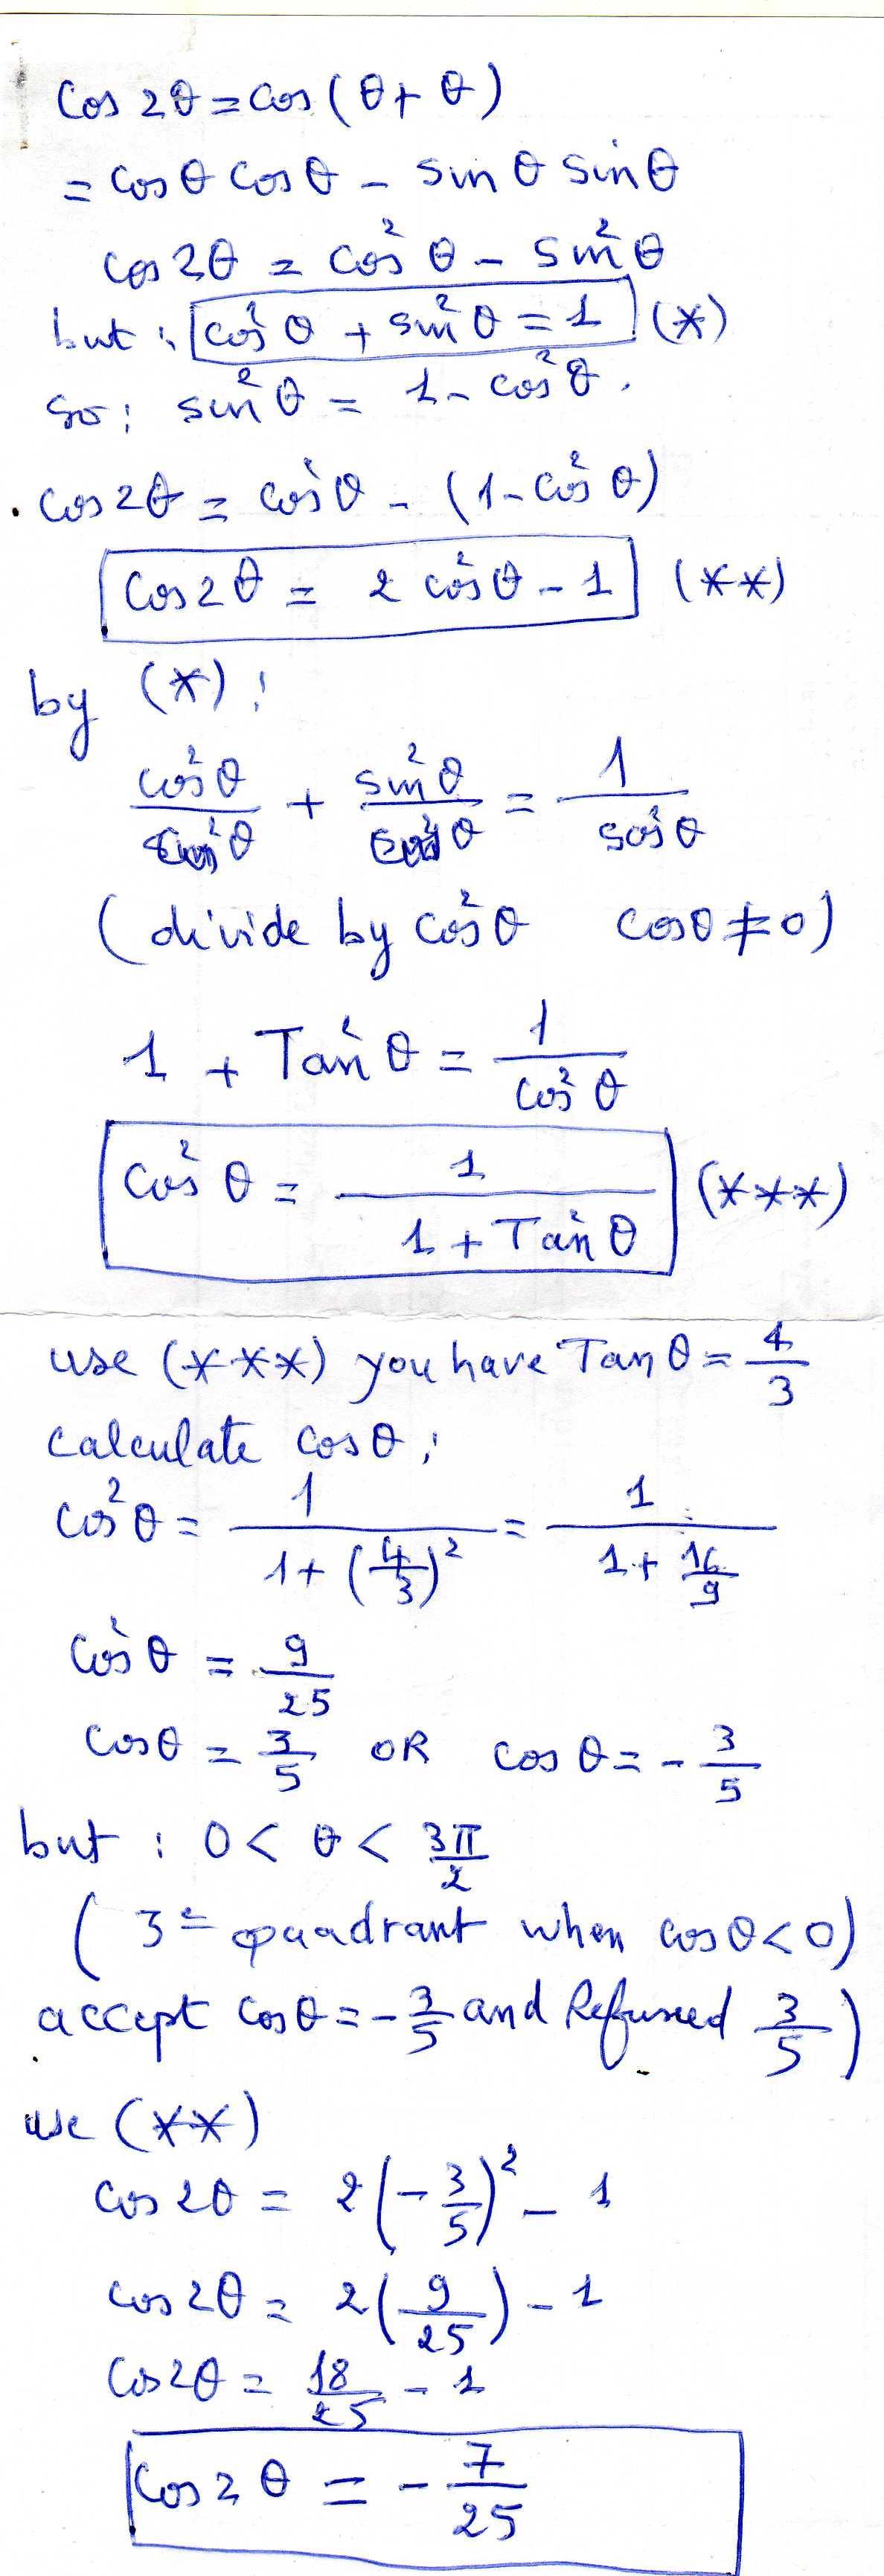 cos 2θ = cos (θ + θ)
= cos θ cos θ - sin θ sin θ
cos 2θ = cos² θ - sin² θ
but : cos² θ + sin² θ = 1 (*)
so : sin² θ = 1 - cos² θ .
. cos 2θ = cos² θ - (1 - cos² θ)
cos 2θ = 2 cos² θ - 1 (**)
by (*) :
cos² θ / cos² θ + sin² θ / cos² θ = 1 / cos² θ
(divide by cos² θ cos θ ≠ 0)
1 + Tan² θ = 1 / cos² θ
cos² θ = 1 / (1 + Tan² θ) (***)
use (***) you have Tan θ = 4/3
calculate cos θ :
cos² θ = 1 / (1 + (4/3)²) = 1 / (1 + 16/9)
cos² θ = 9/25
cos θ = 3/5 OR cos θ = - 3/5
but : 0 < θ < 3π/2
( 3ᵉ quadrant when cos θ < 0)
accept cos θ = - 3/5 and Refused 3/5 )
use (**)
cos 2θ = 2(- 3/5)² - 1
cos 2θ = 2(9/25) - 1
cos 2θ = 18/25 - 1
cos 2θ = - 7/25